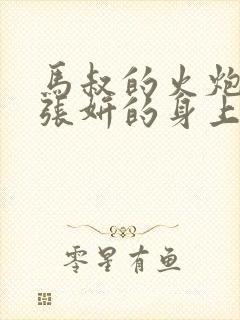 馬叔的火炮
張妍的身上
零星有魚